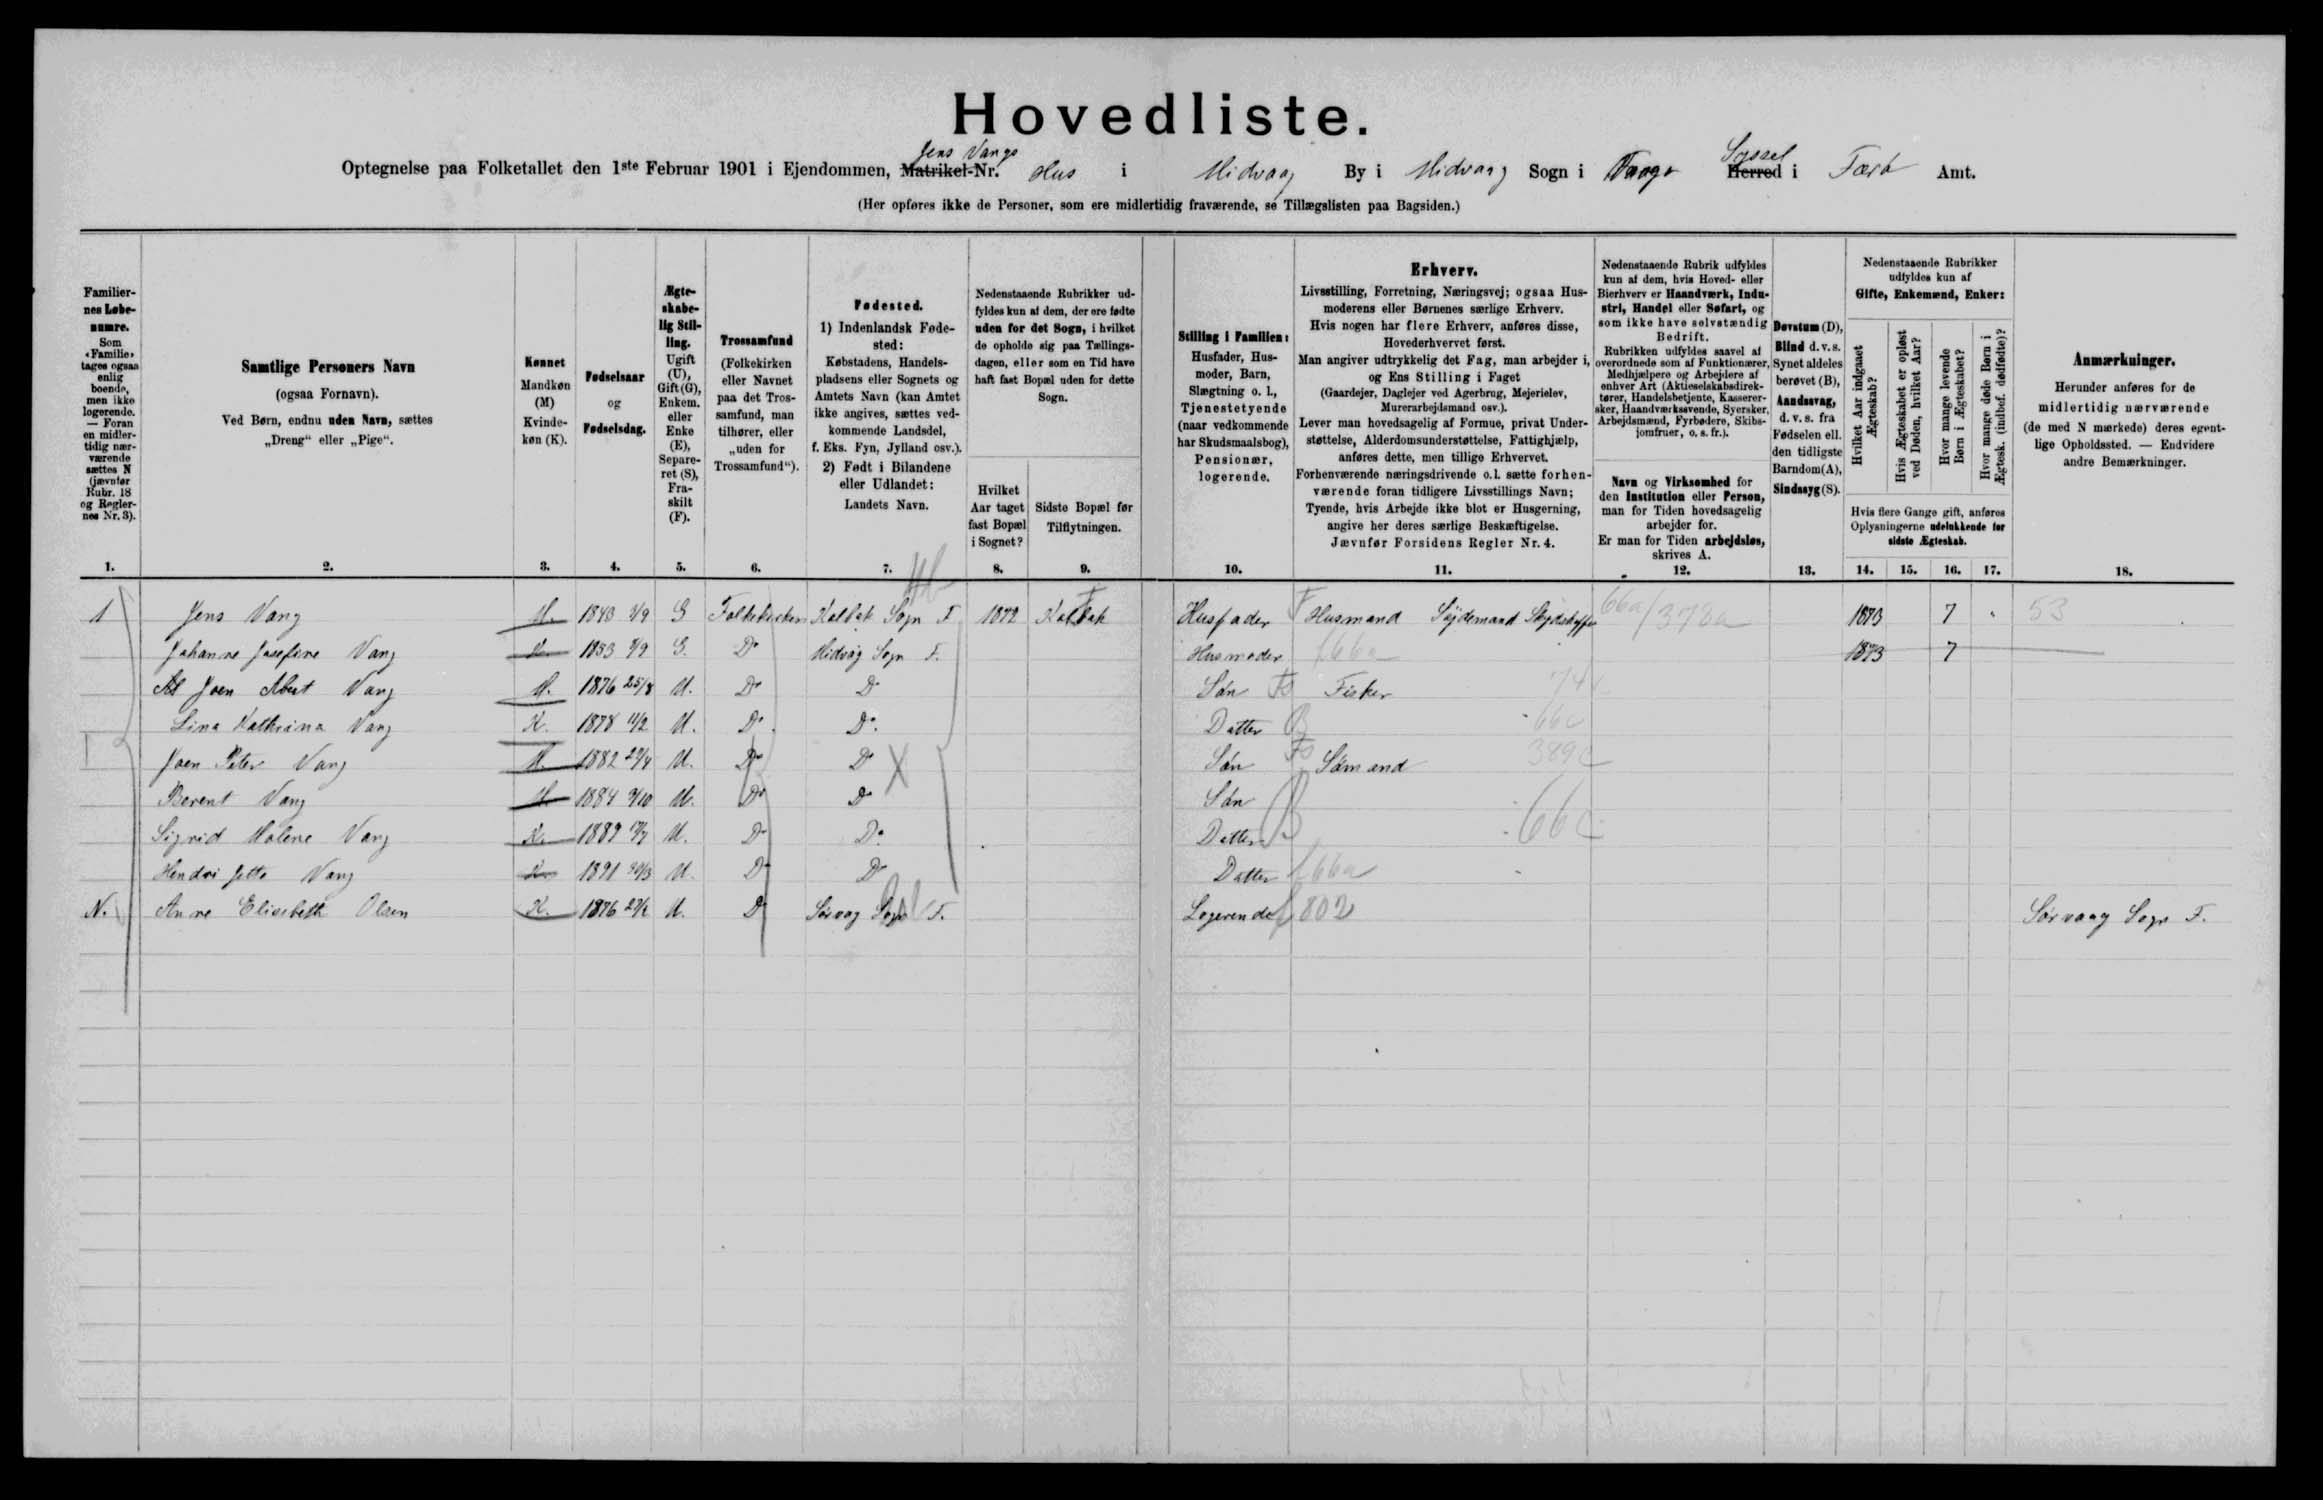 Hovedliste.
Jens Vangs Syssel
Optegnelse paa Folketallet den 1ste Februar 1901 i Ejendommen, Matrikel-Nr. Hus i Midvaag By i Midvaag Sogn i Vaagø Herred i Færø Amt.
(Her opføres ikke de Personer, som ere midlertidig fraværende, se Tillægslisten paa Bagsiden.)
Familiernes Løbenumre.
Som «Familie» tages ogsaa enlig boende, men ikke logerende. — Foran en midlertidig nærværende sættes N (jævnfør Rubr. 18 og Reglernes Nr. 3).
Samtlige Personers Navn
(ogsaa Fornavn).
Ved Børn, endnu uden Navn, sættes „Dreng“ eller „Pige“.
Kønnet
Mandkøn (M)
Kvindekøn (K).
Fødselsaar
og
Fødselsdag.
Ægteskabelig Stilling.
Ugift (U), Gift (G), Enkem. eller Enke (E), Separeret (S), Fraskilt (F).
Trossamfund
(Folkekirken eller Navnet paa det Trossamfund, man tilhører, eller „uden for Trossamfund“).
Fødested.
1) Indenlandsk Fødested:
Købstadens, Handelspladsens eller Sognets og Amtets Navn (kan Amtet ikke angives, sættes vedkommende Landsdel, f. Eks. Fyn, Jylland osv.).
2) Født i Bilandene eller Udlandet:
Landets Navn.
Nedenstaaende Rubrikker udfyldes kun af dem, der ere fødte uden for det Sogn, i hvilket de opholde sig paa Tællingsdagen, eller som en Tid have haft fast Bopæl uden for dette Sogn.
Hvilket Aar taget fast Bopæl i Sognet?
Sidste Bopæl før Tilflytningen.
Stilling i Familien:
Husfader, Husmoder, Barn, Slægtning o. l., Tjenestetyende (naar vedkommende har Skudsmaalsbog), Pensionær, logerende.
Erhverv.
Livsstilling, Forretning, Næringsvej; ogsaa Husmoderens eller Børnenes særlige Erhverv.
Hvis nogen har flere Erhverv, anføres disse, Hovederhvervet først.
Man angiver udtrykkelig det Fag, man arbejder i, og Ens Stilling i Faget
(Gaardejer, Daglejer ved Agerbrug, Mejerielev, Murerarbejdsmand osv.).
Lever man hovedsagelig af Formue, privat Understøttelse, Alderdomsunderstøttelse, Fattighjælp, anføres dette, men tillige Erhvervet.
Forhenværende næringsdrivende o. l. sætte forhenværende foran tidligere Livsstillings Navn;
Tyende, hvis Arbejde ikke blot er Husgerning, angive her deres særlige Beskæftigelse.
Jævnfør Forsidens Regler Nr. 4.
Nedenstaaende Rubrik udfyldes kun af dem, hvis Hoved- eller Bierhverv er Haandværk, Industri, Handel eller Søfart, og som ikke have selvstændig Bedrift.
Rubrikken udfyldes saavel af overordnede som af Funktionærer, Medhjælpere og Arbejdere af enhver Art (Aktieselskabsdirektører, Handelsbetjente, Kasserersker, Haandværkssvende, Syersker, Arbejdsmænd, Fyrbødere, Skibsjomfruer, o. s. fr.).
Navn og Virksomhed for den Institution eller Person, man for Tiden hovedsagelig arbejder for.
Er man for Tiden arbejdsløs, skrives A.
Døvstum (D), Blind d. v. s. Synet aldeles berøvet (B), Aandssvag, d. v. s. fra Fødselen ell. den tidligste Barndom (A), Sindssyg (S).
Nedenstaaende Rubrikker udfyldes kun af Gifte, Enkemænd, Enker:
Hvilket Aar indgaaet Ægteskab?
Hvis Ægteskabet er opløst ved Døden, hvilket Aar?
Hvor mange levende Børn i Ægteskabet?
Hvor mange døde Børn i Ægtesk. (indbef. dødfødte)?
Hvis flere Gange gift, anføres Oplysningerne udelukkende for sidste Ægteskab.
Anmærkninger.
Herunder anføres for de midlertidig nærværende (de med N mærkede) deres egentlige Opholdssted. — Endvidere andre Bemærkninger.
1. 2. 3. 4. 5. 6. 7. 8. 9. 10. 11. 12. 13. 14. 15. 16. 17. 18.
1 Jens Vang M. 1843 G Folkekirken Kalbak Sogn F 1872 Kalbak Husfader F Husmand 66a/378a 1873 7 53
Johanne Josefine Vang K. 1853 G. Do Midvåg Sogn F. Husmoder f66a 1873 7
Joen Abert Vang M. 1876 25/8 U. Do Do Søn Fisker 74
Lina Kathrina Vang K. 1878 U. Do Do Datter B 66c
Joen Peter Vang M. 1882 U. Do Do X Søn Sømand 389c
Berent Vang M. 1884 U. Do Do Søn B 66c
Sigrid Malene Vang K. 1889 U. Do Do Datter
Hendrijette Vang K. 1891 U. Do Do Datter f66a
N. Anne Elisebeth Olsen K. 1876 U. Do Sørvag Sogn F. Logerende f802 Sørvaag Sogn F.